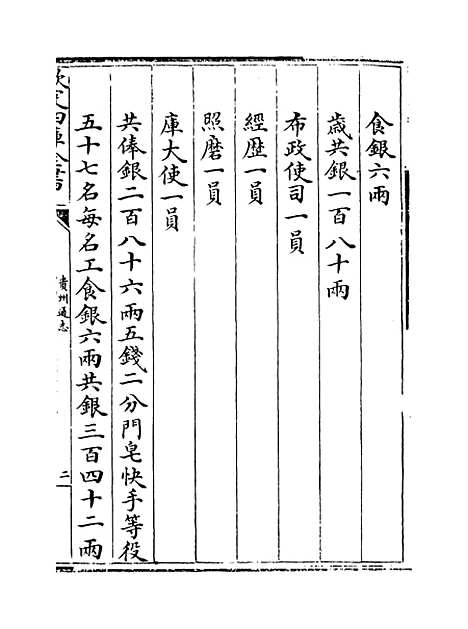 食銀六兩
歳共銀一百八十兩
布政使司一員
經歴一員
照磨一員
庫大使一員
共俸銀二百八十六兩五錢二分門皂快手等役
五十七名每名工食銀六兩共銀三百四十二兩
欽定四庫全書
貴州通志
二